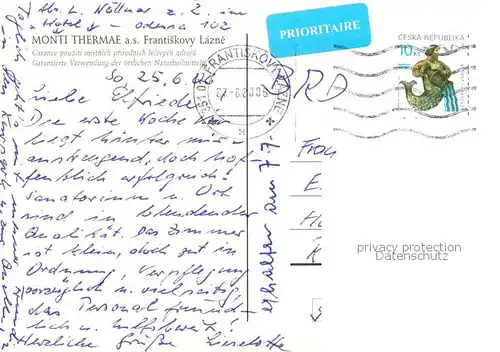 Abs. L. Wöllmer z. Z. im
Hotel
102
MONTI THERMAE a.s. Františkovy Lázně
Garance použití místních přírodních léčivých zdrojů
Garantierte Verwendung der örtlichen Naturheilmittel
So, 25.6.
Liebe Elfriede
Die erste Woche
liegt hinter mir
anstrengend, doch hof
fentlich erfolgreich!
Sanatorium u. Ort
sind in blendender
Qualität. Das Zimmer
ist klein, doch gut in
Ordnung, Verpflegung
vorzüglich u. vielseitig
das Personal freund-
lich u. hilfsbereit!
Herzliche Grüße Lieselotte
erhalten am 7.7.
PRIORITAIRE
FRANTIŠKOVY LÁZNĚ
351 01
27.-6.2006
BRD
ČESKÁ REPUBLIKA
10 Kč
Frau
E.
privacy protection
Datenschutz